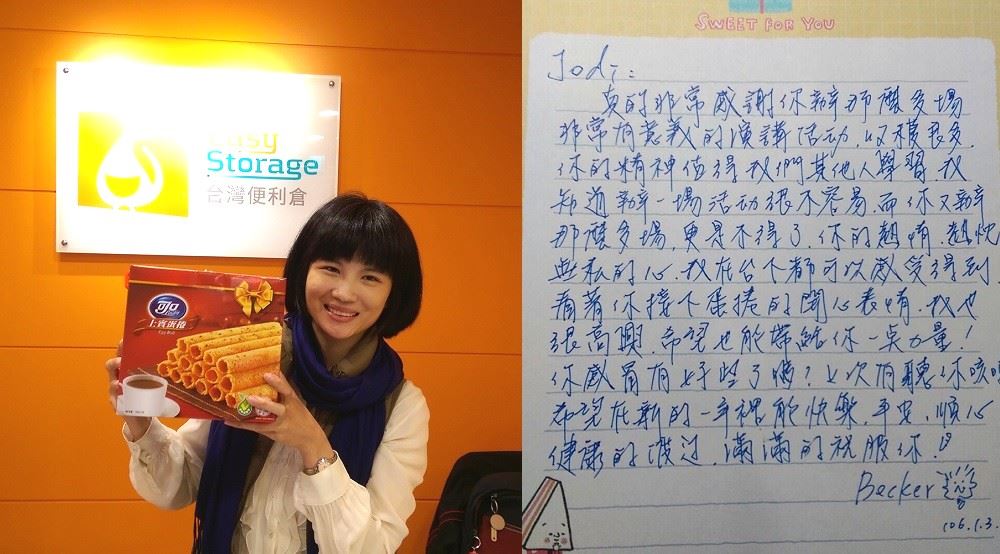 Easy
Storage
台灣便利倉
可口
上賓蛋捲
Egg Roll
SWEET FOR YOU
Jodi:
真的非常感謝你辦那麼多場
非常有意義的演講活動,收穫良多,
你的精神值得我們其他人學習,我
知道辦一場活動很不容易,而你又辦
那麼多場,更是不得了,你的熱情,熱忱
無私的心,我在台下都可以感受得到
看著你接下蛋捲的開心表情,我也
很高興,希望也能帶給你一点力量!
你感冒有好些了嗎?上次有聽你咳
希望在新的一年裡能快樂,平安,順心
健康的渡过,滿滿的祝服你!
Becker
106.1.3.